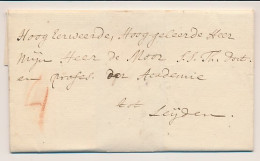 Hoog Eerweerde, Hooggeleerde Heer
Mijn Heer de Moor S.S. Th. Doct.
en profes. der Academie
tot
Leijden.